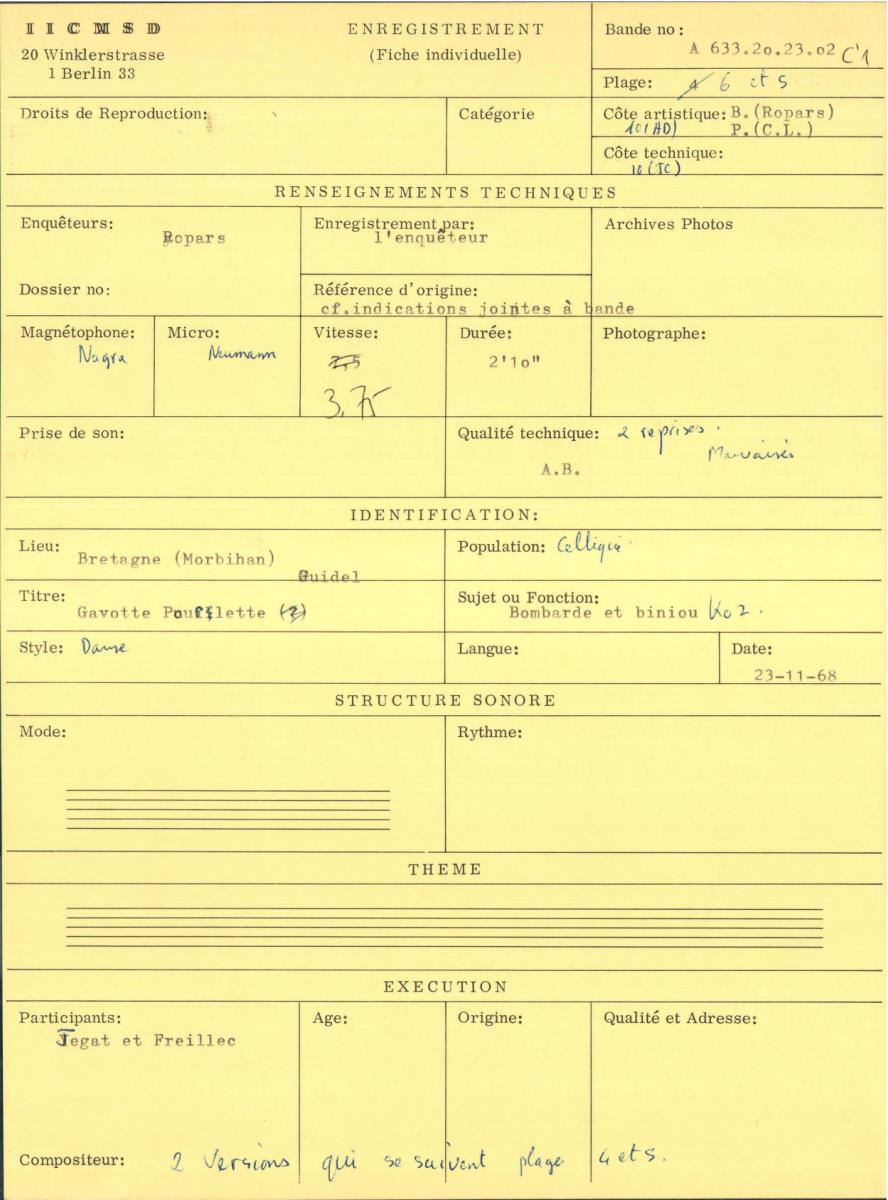 I I C M S D
20 Winklerstrasse
1 Berlin 33
ENREGISTREMENT
(Fiche individuelle)
Bande no :
A 633.2o.23.o2 C'1
Plage: 6 et 5
Droits de Reproduction:
Catégorie
Côte artistique: B.(Ropars)
10(AD) P.(C.L.)
Côte technique:
10 (JC)
RENSEIGNEMENTS TECHNIQUES
Enquêteurs:
Ropars
Enregistrement par:
l'enquêteur
Archives Photos
Dossier no:
Référence d'origine:
cf.indications jointes à bande
Magnétophone:
Nagra
Micro:
Neumann
Vitesse:
7,5
3,75
Durée:
2'1o"
Photographe:
Prise de son:
Qualité technique: 2 reprises.
Mauvaises
A.B.
IDENTIFICATION:
Lieu:
Bretagne (Morbihan)
Guidel
Population: Celtique
Titre:
Gavotte Pourlette (?)
Sujet ou Fonction:
Bombarde et biniou Koz.
Style: Danse
Langue:
Date:
23-11-68
STRUCTURE SONORE
Mode:
Rythme:
THEME
EXECUTION
Participants:
Jegat et Freillec
Age:
Origine:
Qualité et Adresse:
Compositeur: 2 versions qui se suivent plage 4 et 5.